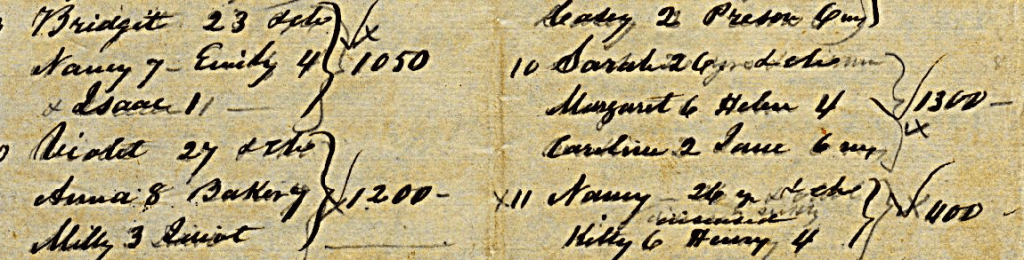 Bridgit 23 & chn
Nancy 7 - Emily 4 1050
& Isaac 1 -
Violet 27 & chn
Anna 8 Baker 7 1200 -
Milly 3
Casey 2 Preson 6 m
10 Sarah 26 & chn
Margaret 6 Helen 4 1300 -
Caroline 2 Jane 6 m
x11 Nancy - 26 y & chn
400 -
Kitty 6 Henry 4